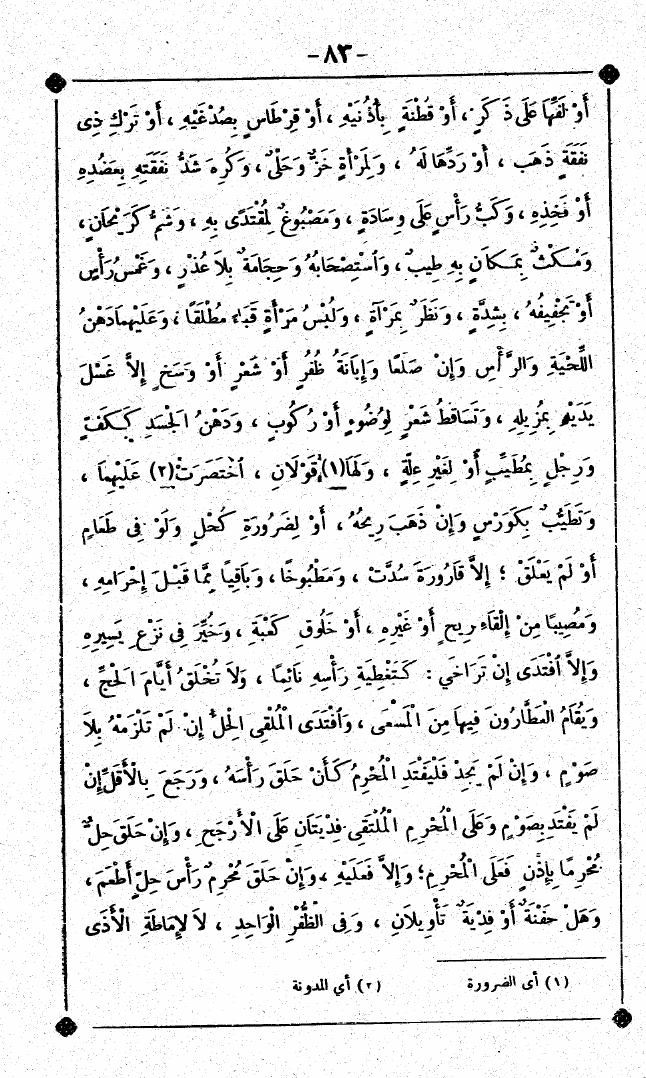 -٨٣-
أَوْ لَفِّهَا عَلَى ذَكَرٍ ، أَوْ قُطْنَةٍ بِأُذُنَيْهِ ، أَوْ قِرْطَاسٍ بِصُدْغَيْهِ ، أَوْ تَرْكِ ذِى
نَفَقَةٍ ذَهَبَ ، أَوْ رَدِّهَا لَهُ ، وَلِمَرْأَةٍ خَزٌّ وَحَلْىٌ ، وَكُرِهَ شَدُّ نَفَقَتِهِ بِعَضُدِهِ
أَوْ فَخِذِهِ ، وَكَبُّ رَأْسٍ عَلَى وِسَادَةٍ ، وَمَصْبُوغٌ لِمُقْتَدًى بِهِ ، وَشَمُّ كَرَيْحَانٍ ،
وَمُكْثٌ بِمَكَانٍ بِهِ طِيبٌ ، وَاسْتِصْحَابُهُ وَحِجَامَةٌ بِلاَ عُذْرٍ ، وَغَمْسُ رَأْسٍ
أَوْ تَجْفِيفُهُ ، بِشِدَّةٍ ، وَنَظَرٌ بِمَرْآةٍ ، وَلُبْسُ مَرْأَةٍ قَبَاءً مُطْلَقًا ، وَعَلَيْهِمَا دَهْنُ
اللِّحْيَةِ وَالرَّأْسِ وَإِنْ صَلَعًا وَإِبَانَةُ ظُفُرٍ أَوْ شَعْرٍ أَوْ وَسَخٍ إِلاَّ غَسْلَ
يَدَيْهِ بِمُزِيلِهِ ، وَتَسَاقُطُ شَعْرٍ لِوُضُوءٍ أَوْ رُكُوبٍ ، وَدَهْنُ الْجَسَدِ كَكَفٍّ
وَرِجْلٍ بِمُطَيِّبٍ أَوْ لِغَيْرِ عِلَّةٍ ، وَلَهَا (١) قَوْلاَنِ ، اخْتَصَرَتْ (٢) عَلَيْهِمَا ،
وَتَطَيُّبٌ بِكَوَرْسٍ وَإِنْ ذَهَبَ رِيحُهُ ، أَوْ لِضَرُورَةِ كُحْلٍ وَلَوْ فِى طَعَامٍ
أَوْ لَمْ يَعْلَقْ ؛ إِلاَّ قَارُورَةً سُدَّتْ ، وَمَطْبُوخًا ، وَبَاقِيًا مِمَّا قَبْلَ إِحْرَامِهِ ،
وَمُصِيبًا مِنْ إِلْقَاءِ رِيحٍ أَوْ غَيْرِهِ ، أَوْ خَلُوقِ كَعْبَةٍ ، وَخُيِّرَ فِى نَزْعِ يَسِيرِهِ
وَإِلاَّ افْتَدَى إِنْ تَرَاخَى : كَتَغْطِيَةِ رَأْسِهِ نَائِمًا ، وَلاَ تُخْلَقُ أَيَّامَ الْحَجِّ ،
وَيُقَامُ الْعَطَّارُونَ فِيهَا مِنَ الْمَسْعَى ، وَافْتَدَى الْمُلْقِى الْحِلُّ إِنْ لَمْ تَلْزَمْهُ بِلاَ
صَوْمٍ ، وَإِنْ لَمْ يَجِدْ فَلْيَفْتَدِ الْمُحْرِمُ كَأَنْ حَلَقَ رَأْسَهُ ، وَرَجَعَ بِالْأَقَلِّ إِنْ
لَمْ يَفْتَدِ بِصَوْمٍ وَعَلَى الْمُحْرِمِ الْمُلْتَقِى فِدْيَتَانِ عَلَى الْأَرْجَحِ ، وَإِنْ حَلَقَ حِلٌّ
مُحْرِمًا بِإِذْنٍ فَعَلَى الْمُحْرِمِ ؛ وَإِلاَّ فَعَلَيْهِ ، وَإِنْ حَلَقَ مُحْرِمٌ رَأْسَ حِلٍّ أَطْعَمَ ،
وَهَلْ حَفْنَةٌ أَوْ فِدْيَةٌ تَأْوِيلاَنِ ، وَفِى الظُّفُرِ الْوَاحِدِ ، لاَ لِإِمَاطَةِ الْأَذَى
(١) أى الضرورة (٢) أي المدونة